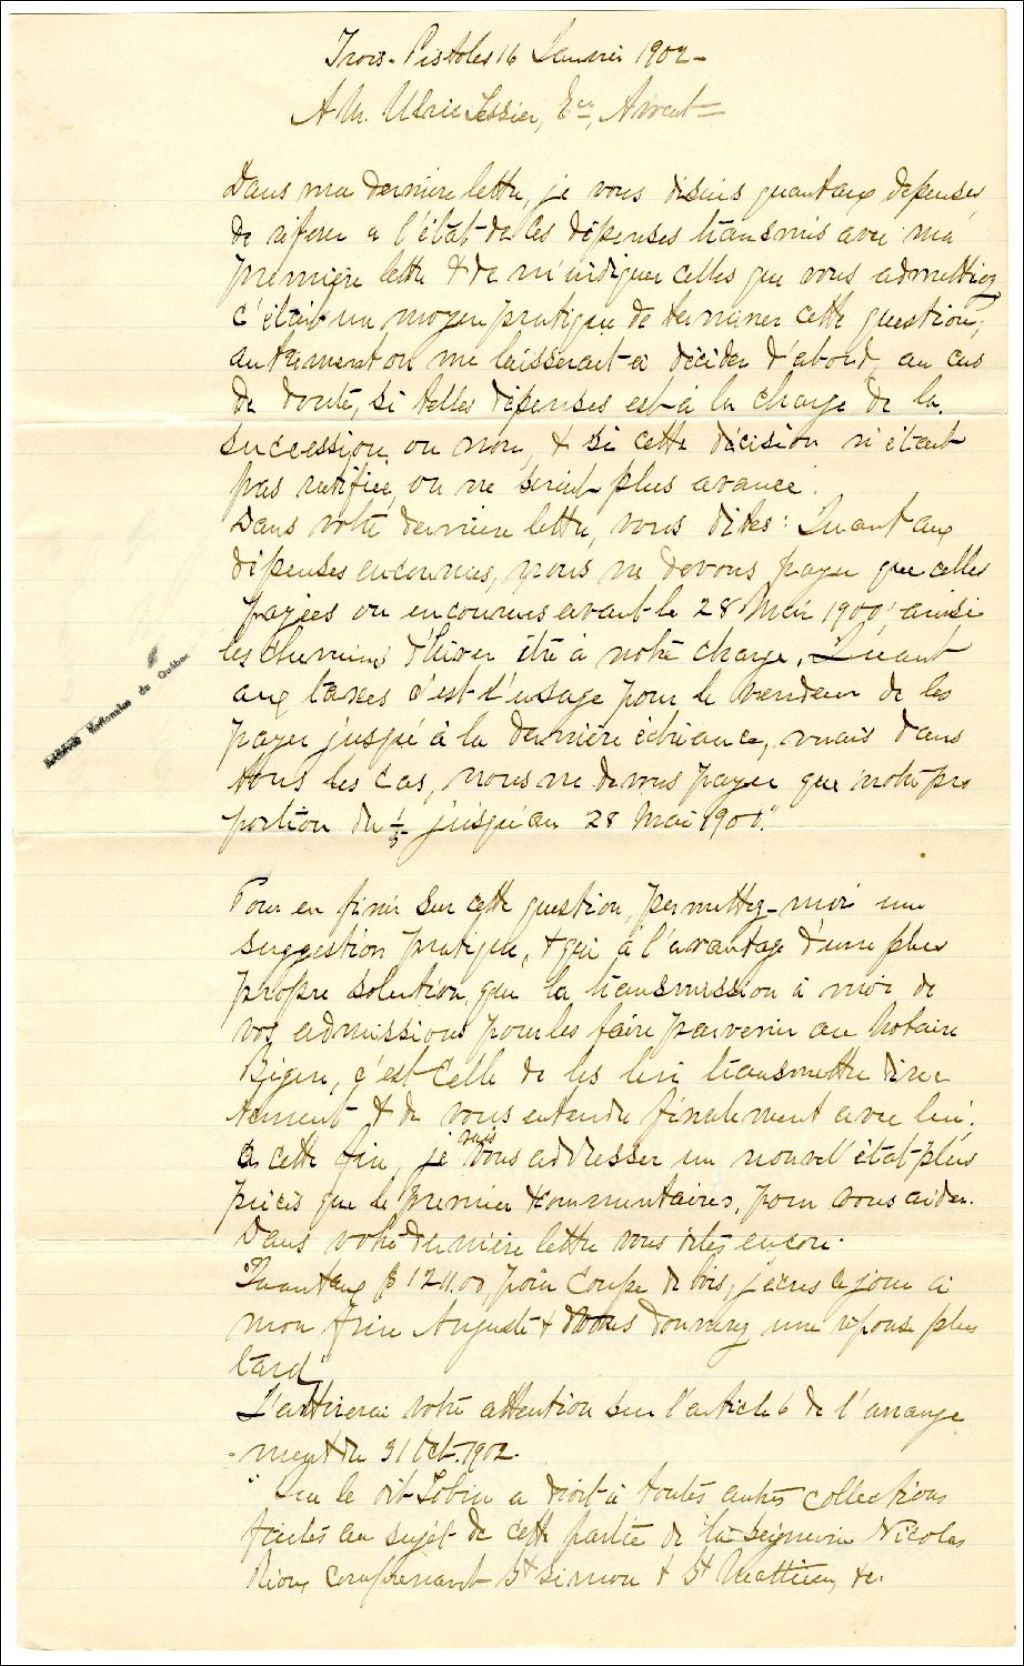 Trois-Pistoles 16 Janvier 1902-
A M. Ulric Tessier, Ecr, Avocat
Dans ma dernière lettre, je vous disais quant aux dépenses,
de référer a l'état de ces dépenses transmis avec ma
première lettre & de m'indiquer celles que vous admettiez
c'était un moyen pratique de terminer cette question;
autrement on me laisserait à décider d'abord, au cas
de doute, si telles dépenses est à la charge de la
succession, ou non, & si cette décision n'étant
pas ratifiée, on ne serait plus avancé.
Dans votre dernière lettre, vous dites: "Quant aux
dépenses encourues, nous ne devons payer que celles
payées ou encourues avant le 28 Mai 1900; ainsi
les chemins d'hiver été à notre charge. Quant
aux taxes c'est l'usage pour le vendeur de les
payer jusqu'à la dernière échéance, mais dans
tous les cas, nous ne devons payer que notre pro
portion du 1/5 jusqu'au 28 Mai 1900."
Pour en finir sur cette question, permettez-moi une
suggestion pratique, & qui à l'avantage d'une plus
propre solution, que la transmission à moi de
vos admissions pour les faire parvenir au Notaire
c'est celle de les lui transmettre direc
tement & de vous entendre finalement avec lui.
A cette fin, je vais vous addresser un nouvel état plus
précis que le premier & commentaires, pour vous aider.
Dans votre dernière lettre vous dites encore:
"Quant aux $ 1211.00 pour coupe de bois, j'écris ce jour à
mon frère Auguste & vous donnerez une réponse plus
tard"
J'attirerai votre attention sur l'article 6 de l'arrange
-ment du 31 Oct. 1902.
"Que le dit a droit à toutes autres collections
faites au sujet de cette partie de la seigneurie Nicolas
Rioux comprenant St Simon & St Mathieu, &c.
Archives Nationales du Québec